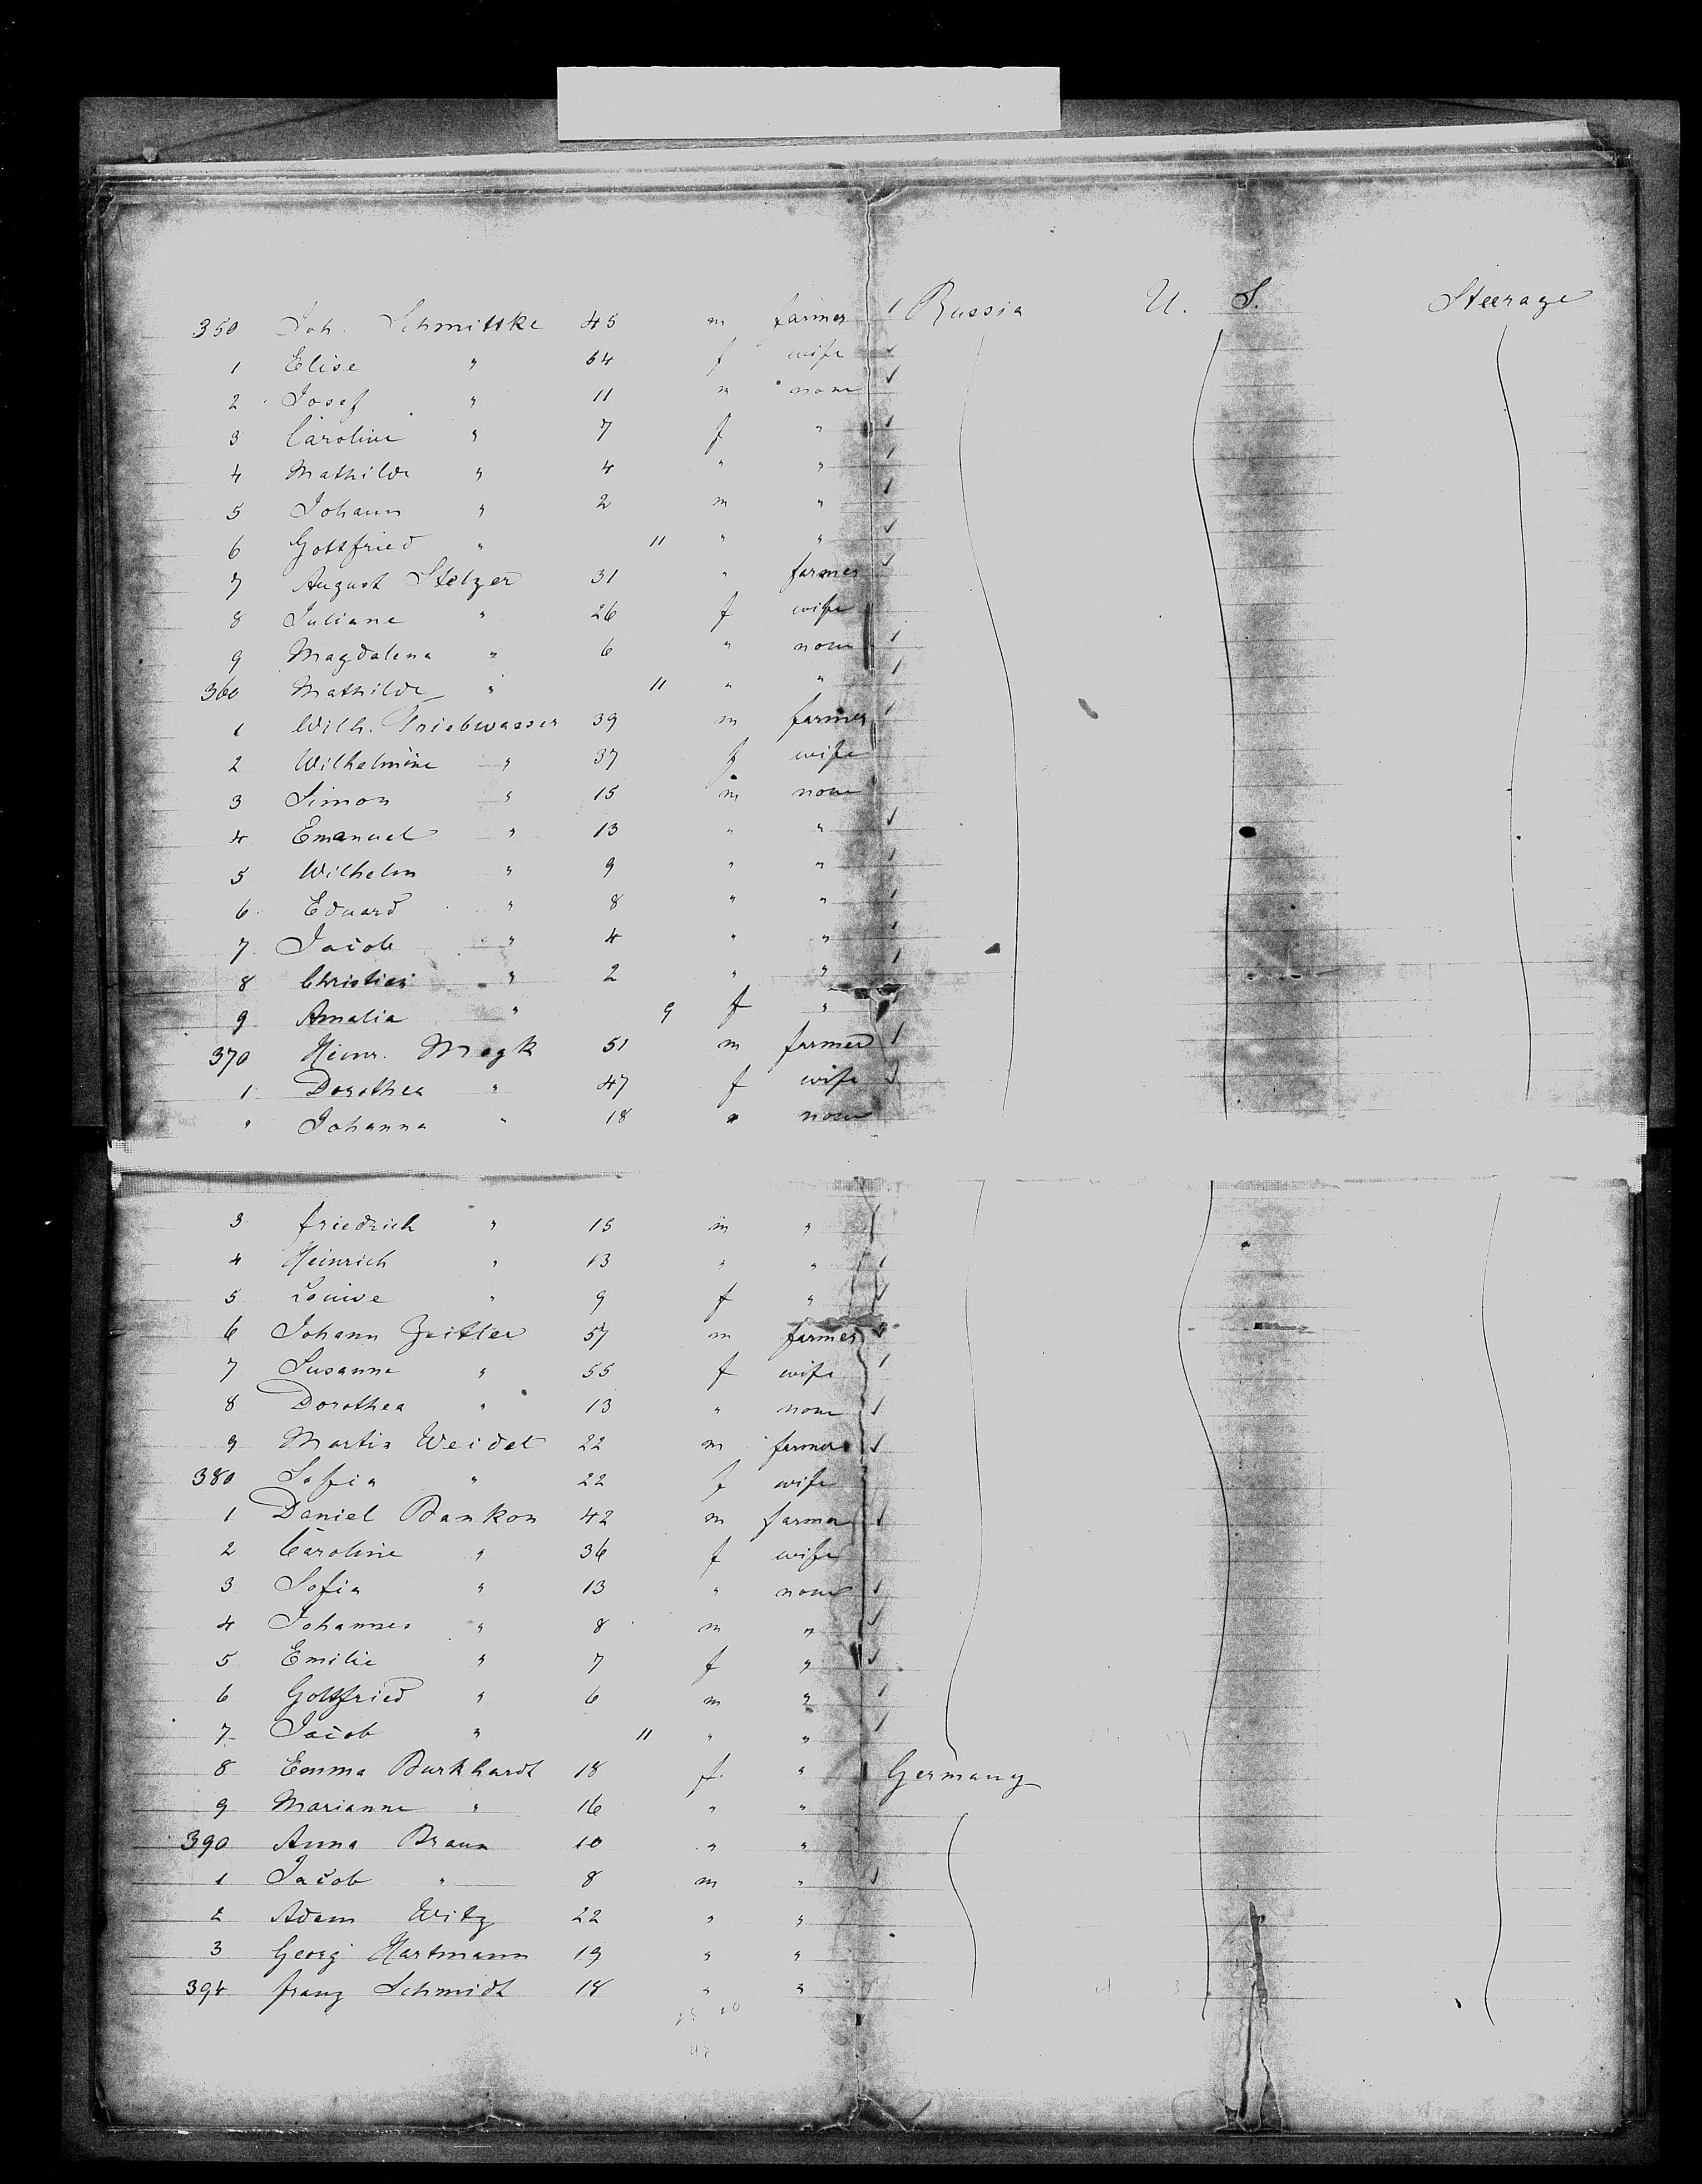 350 Joh. Schmittke 45 m farmer / Russia U. S. Steerage
1 Elise " 64 f wife ✓
2 Josef " 11 m none ✓
3 Caroline " 7 f " ✓
4 Mathilde " 4 " " ✓
5 Johann " 2 m " ✓
6 Gottfried " 11 " " ✓
7 August Stelzer 31 " farmer ✓
8 Juliane " 26 f wife
9 Magdalena " 6 " none /
360 Mathilde " 11 " " /
1 Wilh. Triebwasser 39 m farmer /
2 Wilhelmine " 37 f wife
3 Simon " 15 m none
4 Emanuel " 13 " " ✓
5 Wilhelm " 9 " " /
6 Eduard " 8 " " /
7 Jacob " 4 " " /
8 Christian " 2 " " /
9 Amalia " 9 f " /
370 Heinr. Magk 51 m farmer /
1 Dorothea " 47 f wife ✓
" Johanna " 18 " none
3 Friedrich " 15 m " /
4 Heinrich " 13 " " /
5 Louise " 9 f " ✓
6 Johann Zeitler 57 m farmer
7 Susanne " 55 f wife /
8 Dorothea " 13 " none ✓
9 Martin Weidel 22 m farmer ✓
380 Sofia " 22 f wife
1 Daniel Bankon 42 m farmer ✓
2 Caroline " 36 f wife
3 Sofia " 13 " none ✓
4 Johannes " 8 m " ✓
5 Emilie " 7 f " ✓
6 Gottfried " 6 m " ✓
7 Jacob " 11 " " ✓
8 Emma Burkhardt 18 f. " Germany
9 Marianne " 16 " "
390 Anna Braun 10 " "
1 Jacob " 8 m " ✓
2 Adam Witz 22 " "
3 Georg Hartmann 19 " "
394 Franz Schmidt 18 " "